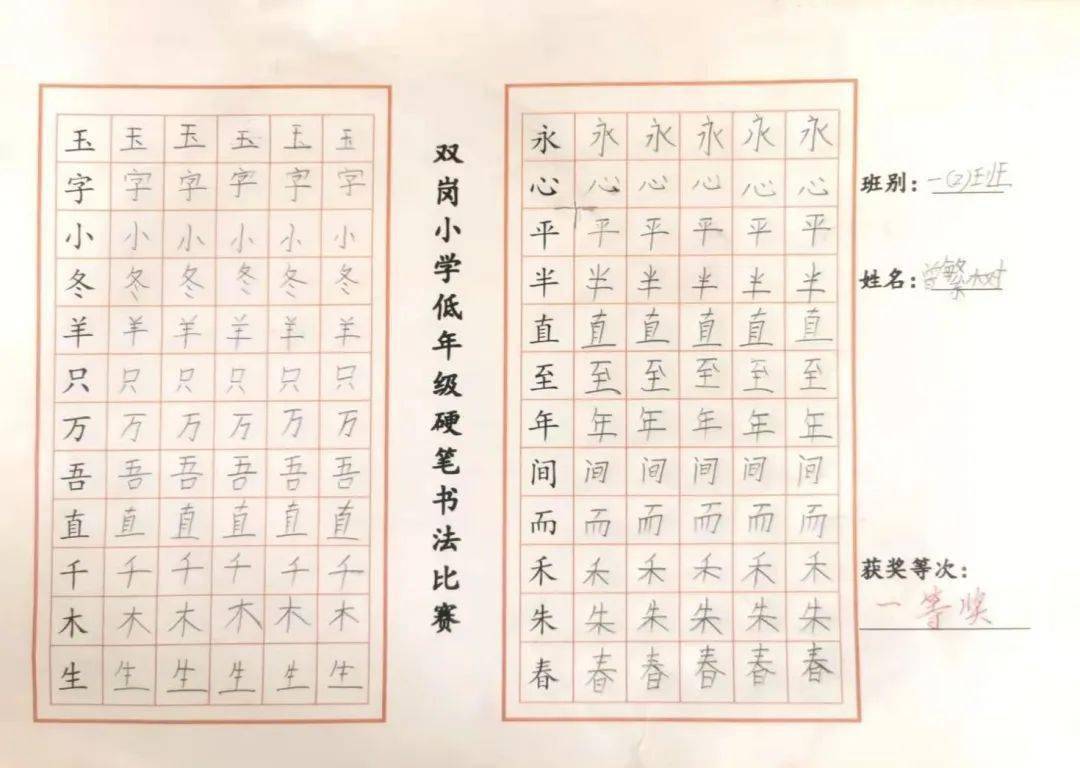 玉玉玉玉玉玉
字字字字字字
小小小小小小
冬冬冬冬冬冬
羊羊羊羊羊羊
只只只只只只
万万万万万万
吾吾吾吾吾吾
直直直直直直
千千千千千千
木木木木木木
生生生生生生
双岗小学低年级硬笔书法比赛
永永永永永永
心心心心心心
平平平平平平
半半半半半半
直直直直直直
至至至至至至
年年年年年年
间间间间间间
而而而而而而
禾禾禾禾禾禾
朱朱朱朱朱朱
春春春春春春
班别：一(2)班
姓名：曾繁树
获奖等次：
一等奖